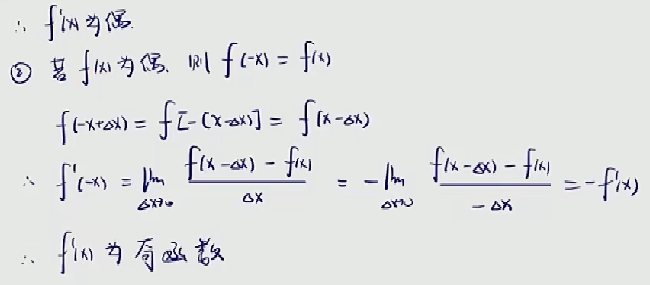 ∴ f'(x) 为偶.
② 若 f(x) 为偶. 则 f(-x) = f(x)
f(-x+Δx) = f[-(x-Δx)] = f(x-Δx)
∴ f'(-x) = lim_{Δx→0} \frac{f(x-Δx) - f(x)}{Δx} = -lim_{Δx→0} \frac{f(x-Δx) - f(x)}{-Δx} = -f'(x)
∴ f'(x) 为 奇函数